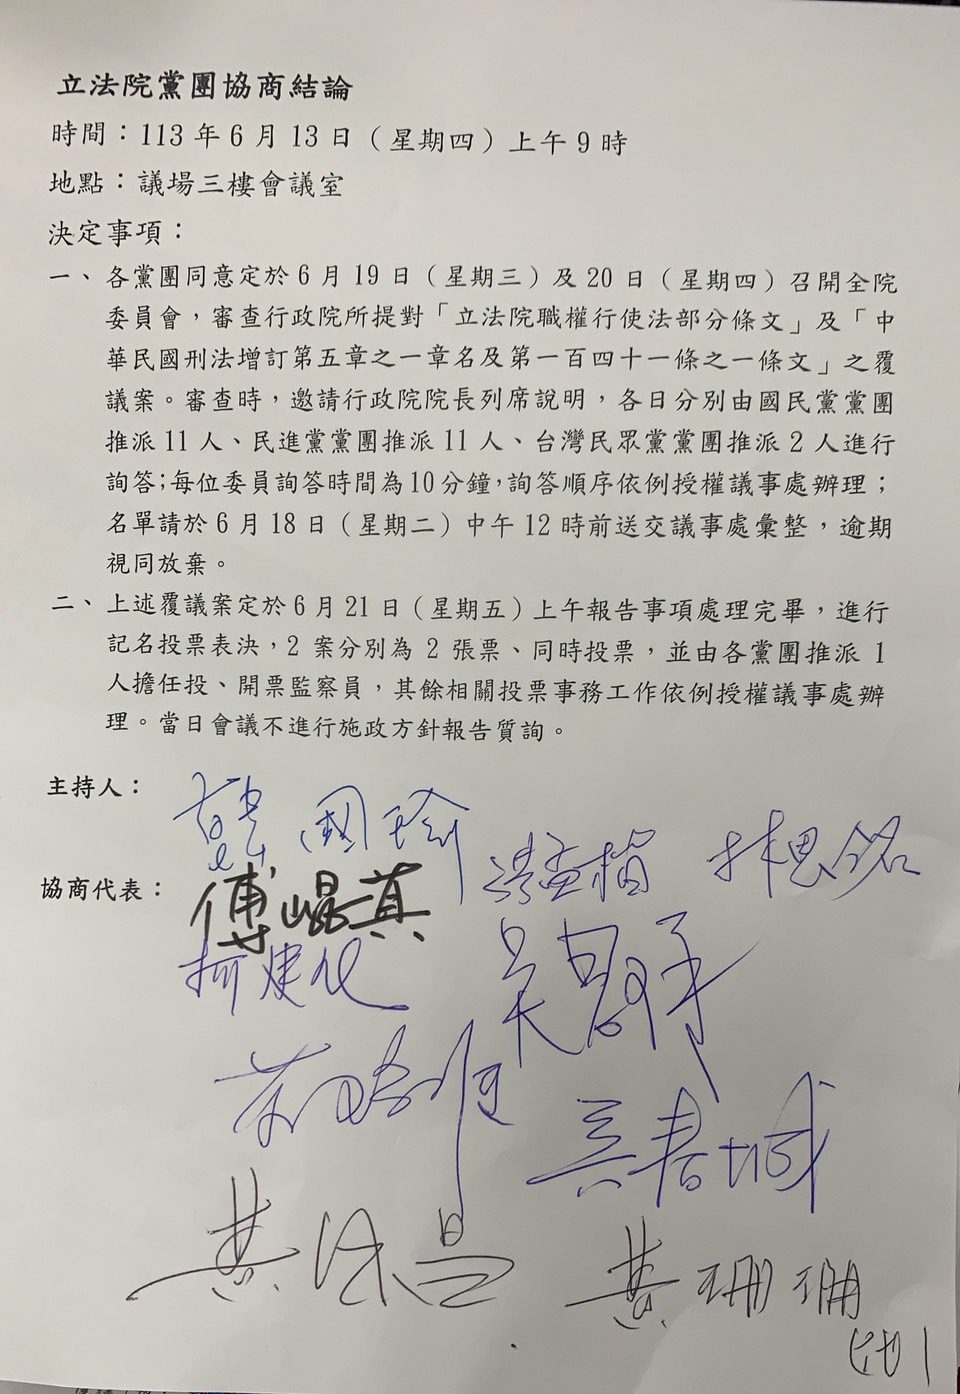 立法院黨團協商結論
時間：113年6月13日（星期四）上午9時
地點：議場三樓會議室
決定事項：
一、各黨團同意定於6月19日（星期三）及20日（星期四）召開全院
委員會，審查行政院所提對「立法院職權行使法部分條文」及「中
華民國刑法增訂第五章之一章名及第一百四十一條之一條文」之覆
議案。審查時，邀請行政院院長列席說明，各日分別由國民黨黨團
推派11人、民進黨黨團推派11人、台灣民眾黨黨團推派2人進行
詢答;每位委員詢答時間為10分鐘,詢答順序依例授權議事處辦理；
名單請於6月18日（星期二）中午12時前送交議事處彙整，逾期
視同放棄。
二、上述覆議案定於6月21日（星期五）上午報告事項處理完畢，進行
記名投票表決，2案分別為2張票、同時投票，並由各黨團推派1
人擔任投、開票監察員，其餘相關投票事務工作依例授權議事處辦
理。當日會議不進行施政方針報告質詢。
主持人：
韓國瑜
洪孟楷 林思銘
協商代表：
傅崐萁
柯建銘 吳思瑤
莊瑞雄
吳春城
黃國昌 黃珊珊